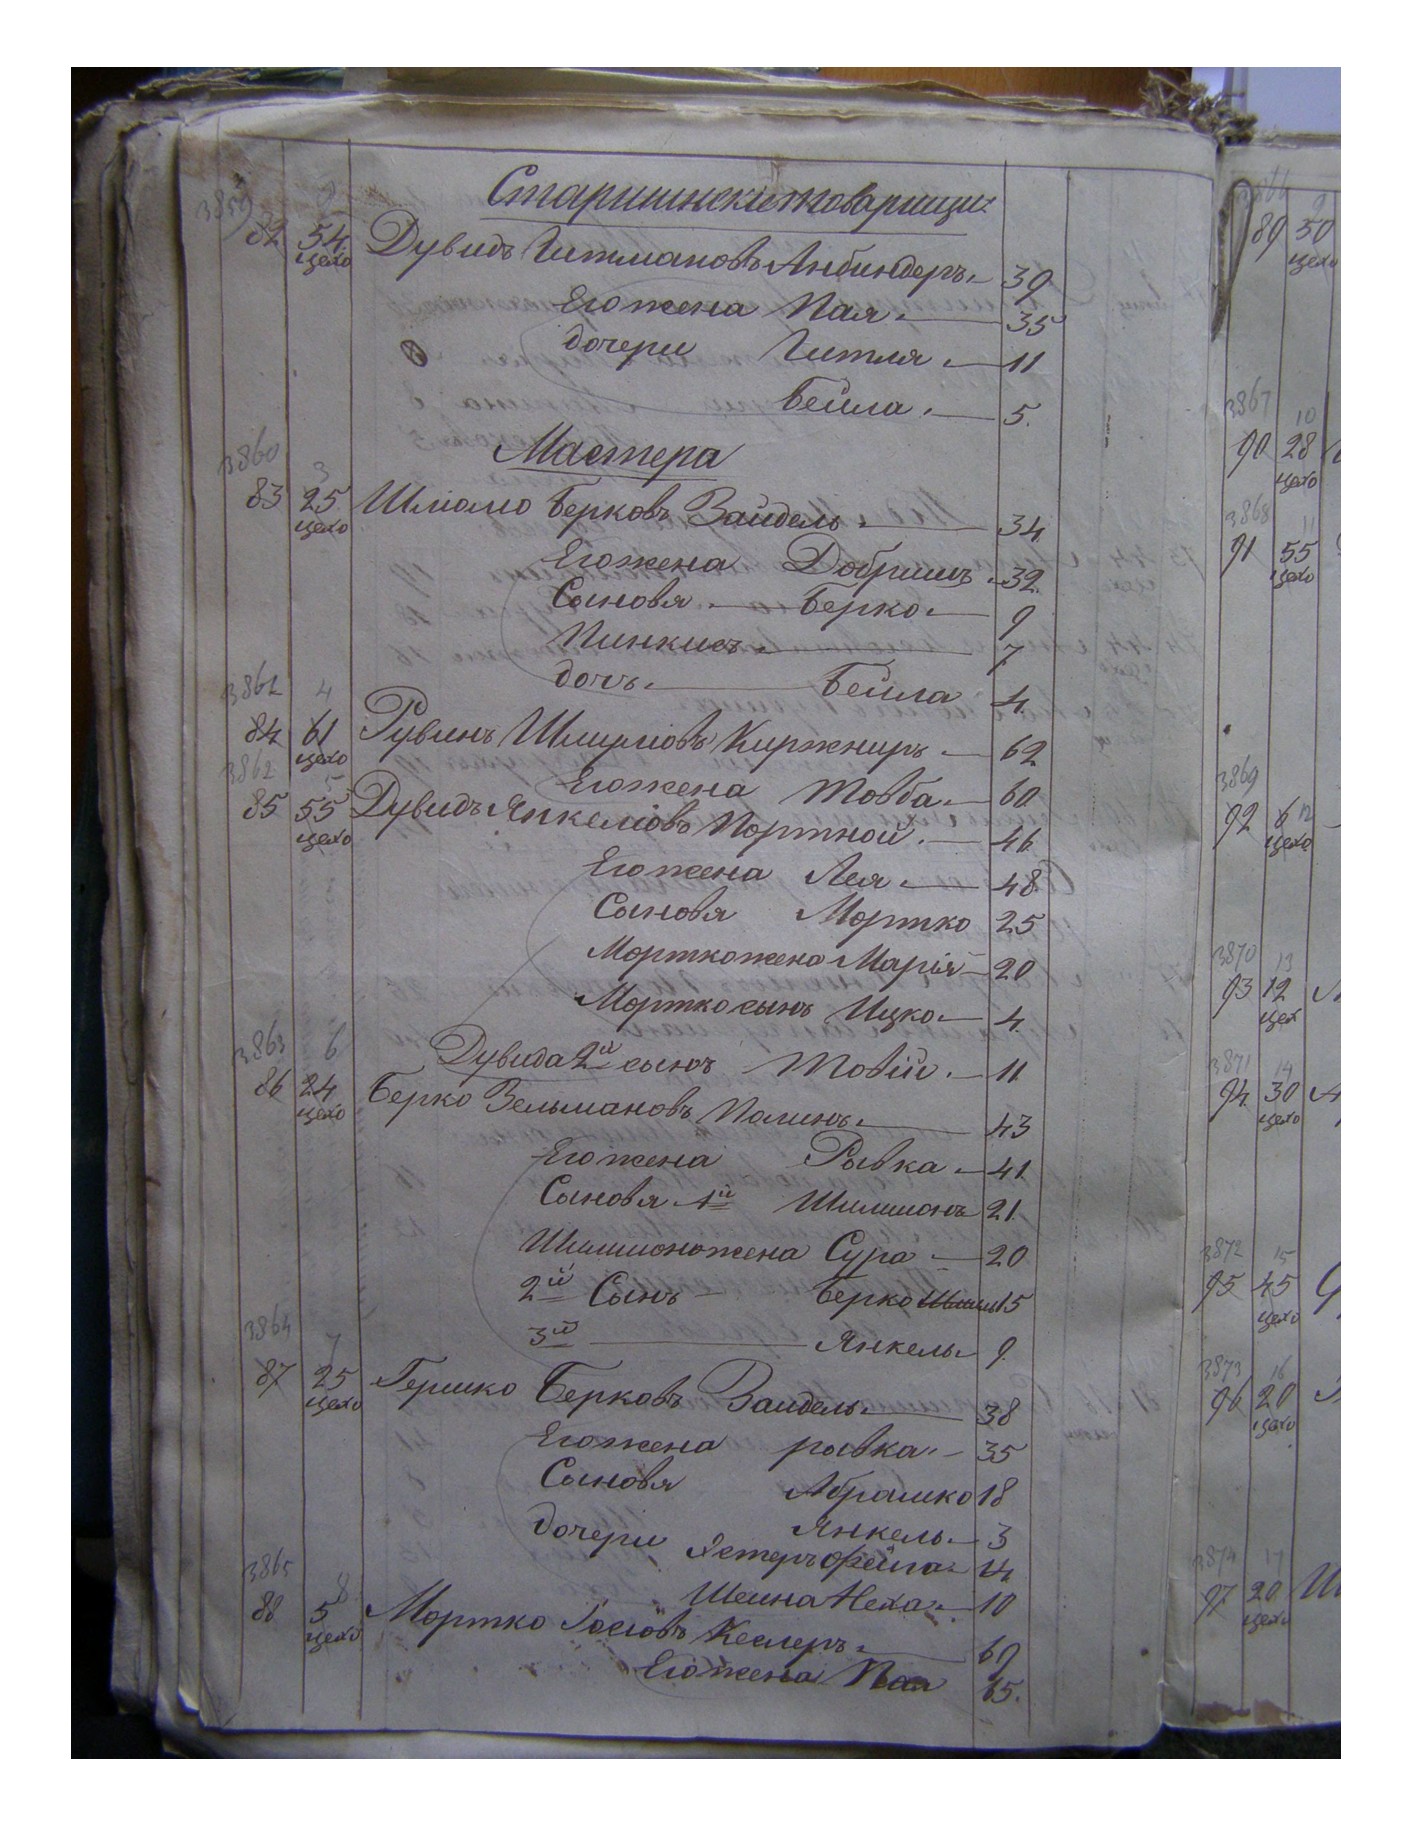 Старшински товарищи:
3859 9
82 54. Дувидъ Гитмановъ Анбиндеръ 39
цехо
Его жена Пая. 35
дочери Гитля. 11
Бейла. 5.
Мастера
3860 3
83 25 Шліомо Берковъ Зайдель. 34
цехо
Его жена Добришъ 32
Сыновя Берко. 9
Пинкисъ. 7.
дочь. Бейла 4.
3861 4
84 61 Рувинъ Шмулiовъ Киржниръ 62
цехо
Его жена Товба. 60
3862 5
85 55 Дувидъ Янкелiовъ Портной. 46
цехо
Его жена Лея 48
Сыновя Мортко 25
Мортко жена Марiя 20
Мортко сынъ Ицко. 4.
Дувида 2й сынъ Товiй. 11
3863 6
86 24 Берко Зельмановъ Полинъ. 43
цехо
Его жена Рывка 41
Сыновя 1й Шимшонъ 21.
Шимшона жена Сура 20
2й Сынъ Берко 15
3й Янкель 9.
3864 7
87 25 Гершко Берковъ Зайдель. 38
цехо
Его жена рывка. 35
Сыновя Абрашко 18
Янкель. 3
дочери Эстеръ Фейга 14
Шейна Неха. 10
3865 8
88 5 Мортко Iосiовъ Кеслеръ. 69
цехо
Его жена Пая 65.
3866 9
89 50
цехо
3867 10
90 28
цехо
3868 11
91 55
цехо
3869
92 6 12
цехо
3870 13
93 12
цех
3871 14
94. 30
цехо
3872 15
95 45
цехо
3873 16
96 20
цехо
3874 17
97 20
цехо